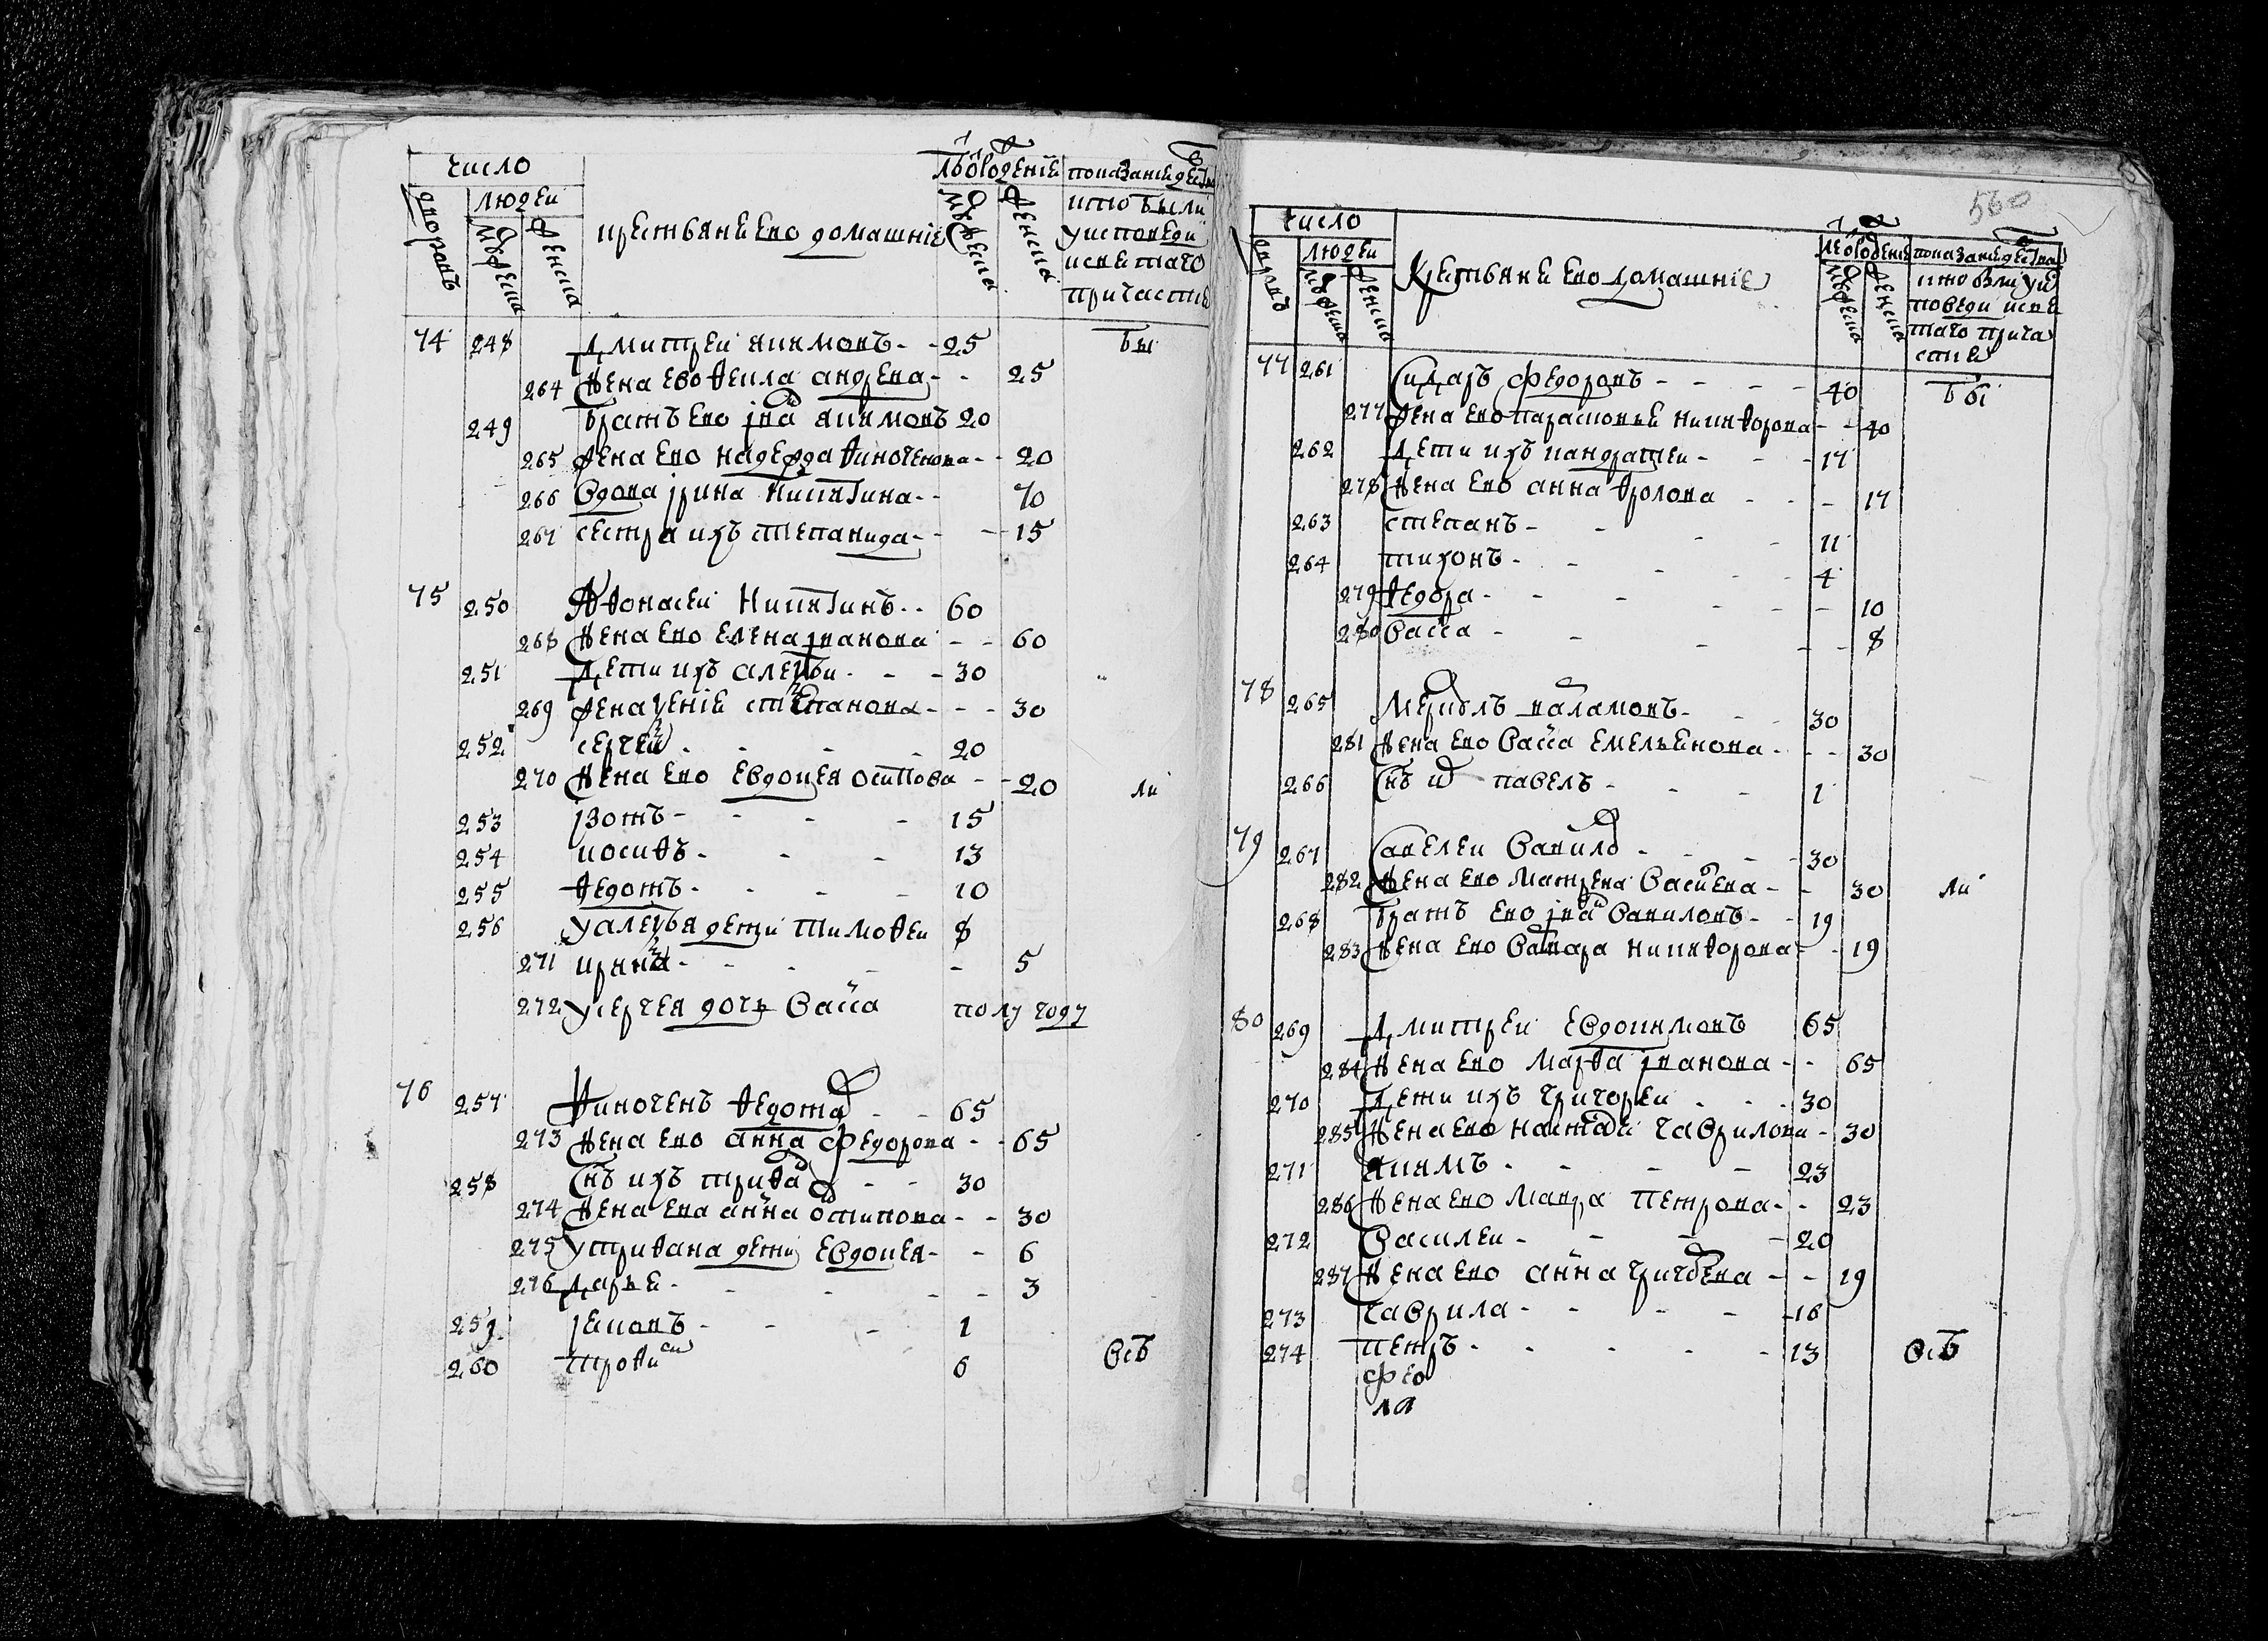 число
людеи
дворовъ
мужеска
женска
крестьяне ево домашние
лѣ от рождение
мужеска
женска
показание действа
кто были
у исповеди
и святаго
причастия
74 248 Дмитреи якимовъ - - 25 бы
264 жена ево фекла андрева - - 25
249 братъ ево іва якимовъ 20
265 жена ево надежда финогенова - - 20
266 вдова ірина никитина - - 70
267 сестра ихъ степанида - - 15
75 250 Афонасеи Никитинъ - - 60
268 жена ево елена іванова - - 60
251 Дети ихъ алексеи - - - 30
269 жена ксение степанова - - - 30
252 сергеи - - - 20
270 жена ево евдокея осипова - - 20 ли
253 ізотъ - - - 15
254 иосифъ - - - 13
255 федотъ - - - 10
256 у алексея дети тимофеи 8
271 ирина - - - - 5
272 у сергея дочь васса полугоду
76 257 Финогенъ федото - - 65
273 жена ево анна федорова - - 65
258 снъ ихъ трифа - - 30
274 жена ева анна осипова - - 30
275 у трифана дети евдокея - - 6
276 дарья - - - - 3
259 - - - 1
260 трофи 6 всѣ
560
число
людеи
дворовъ
мужеска
женска
Крестьяне ево домашние
лѣ от рождение
мужеска
женска
показание действа
кто были у ис
поведи и свя
таго прича
стия
77 261 Сидаръ федоровъ - - - - 40 бы
277 жена ево парасковья никифорова - - 40
262 Дети ихъ кандратеи - - - 17
278 жена ево анна фролова - - - 17
263 степанъ - - - - 11
264 тихонъ - - - - 4
279 федора - - - - - 10
280 васса - - - - - 8
78 265 меркулъ валамовъ - - - 30
281 жена ево васса емельянова - - - 30
266 снъ и павелъ - - - 1
79 267 савелеи вавило - - - 30
282 жена ево матрена васиева - - 30 ли
268 братъ ево іва вавиловъ - - 19
283 жена ево варвара никифорова - - 19
80 269 Дмитреи евдокимовъ 65
284 жена ево марфа іванова - - 65
270 Дети ихъ григореи - - - 30
285 жена ево настасі гаврилова - 30
271 якимъ - - - - 23
286 жена ево мавра петрова - - 23
272 василеи - - - - 20
287 жена ево анна григоева - - 19
273 гаврила - - - - 16
274 петръ - - - - - 13 всѣ
фео
ла